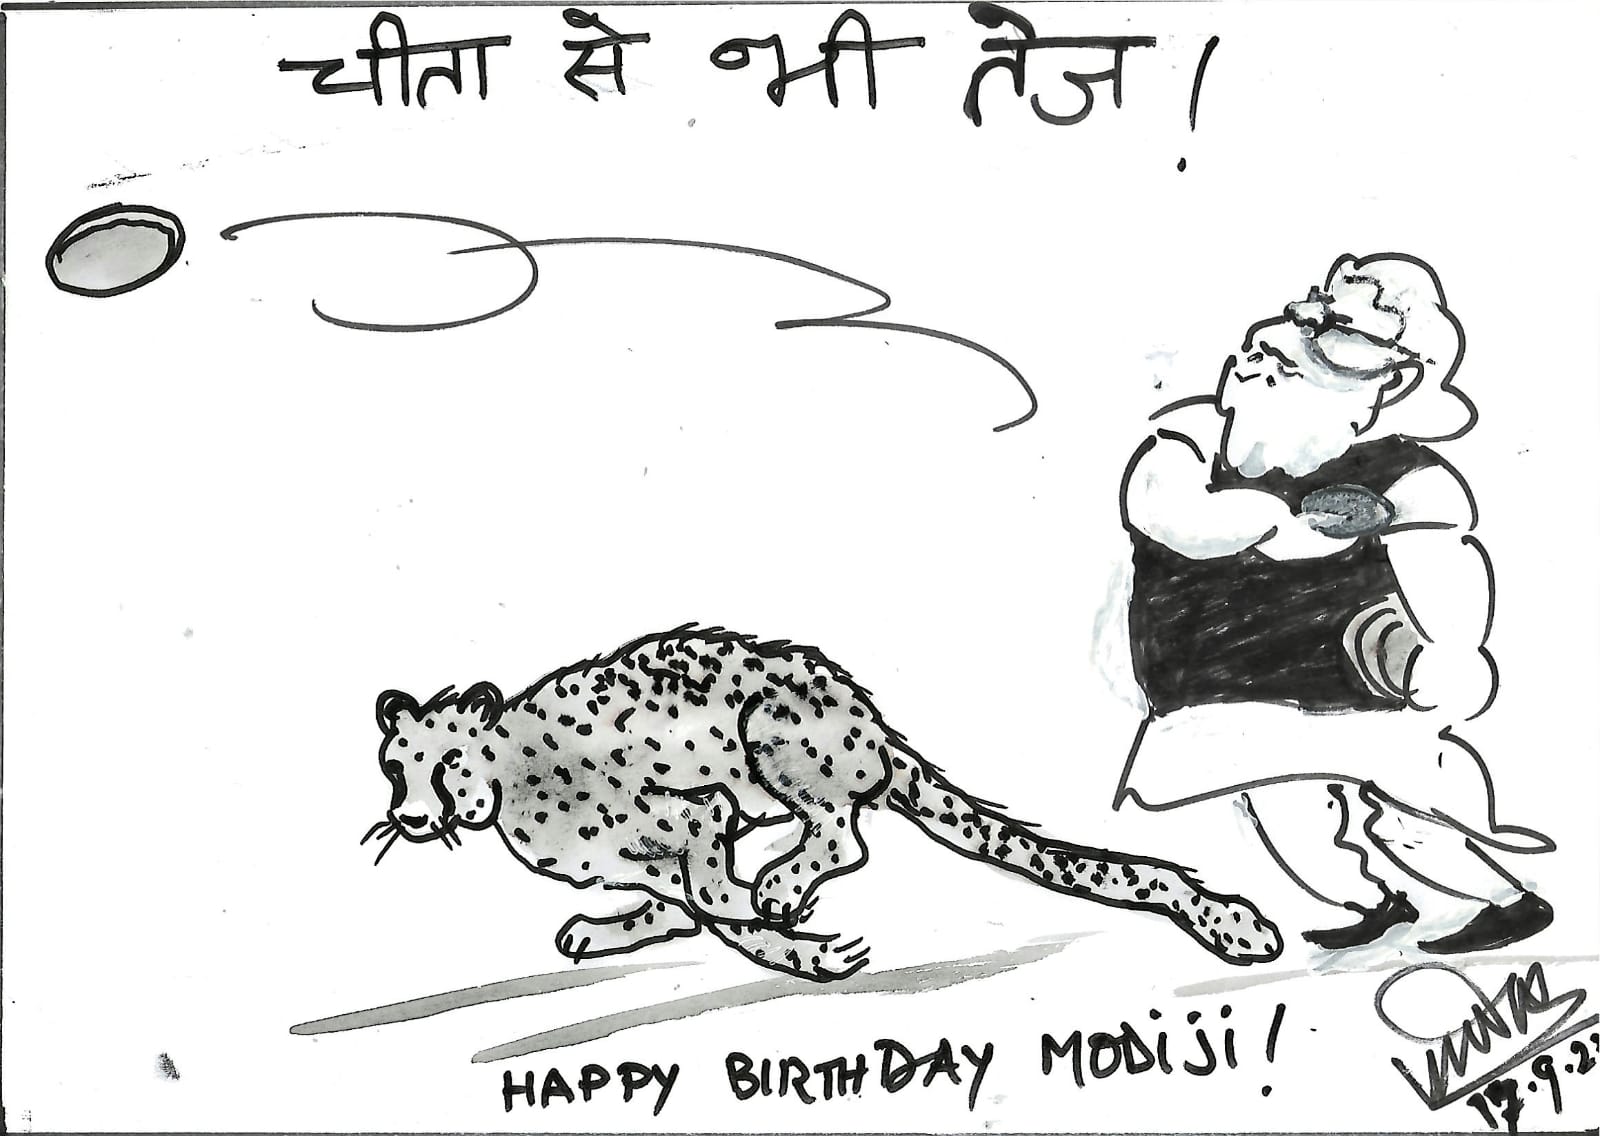 चीता से भी तेज !
HAPPY BIRTHDAY MODiji !
17.9.22